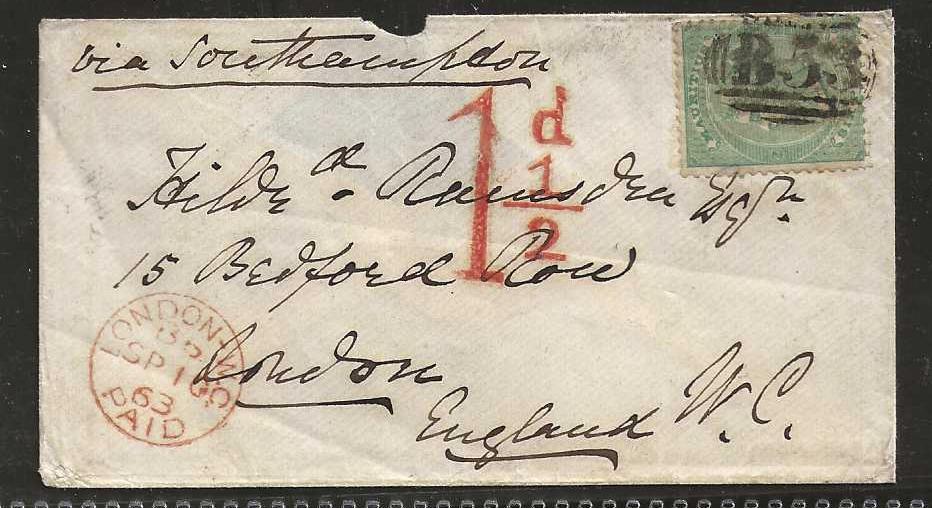 via Southampton
B53
1 d 1/2
Hilde^d. Ramsden Esqr.
15 Bedford Row
London
England W.C.
LONDON-W.C
SP 10
63
PAID